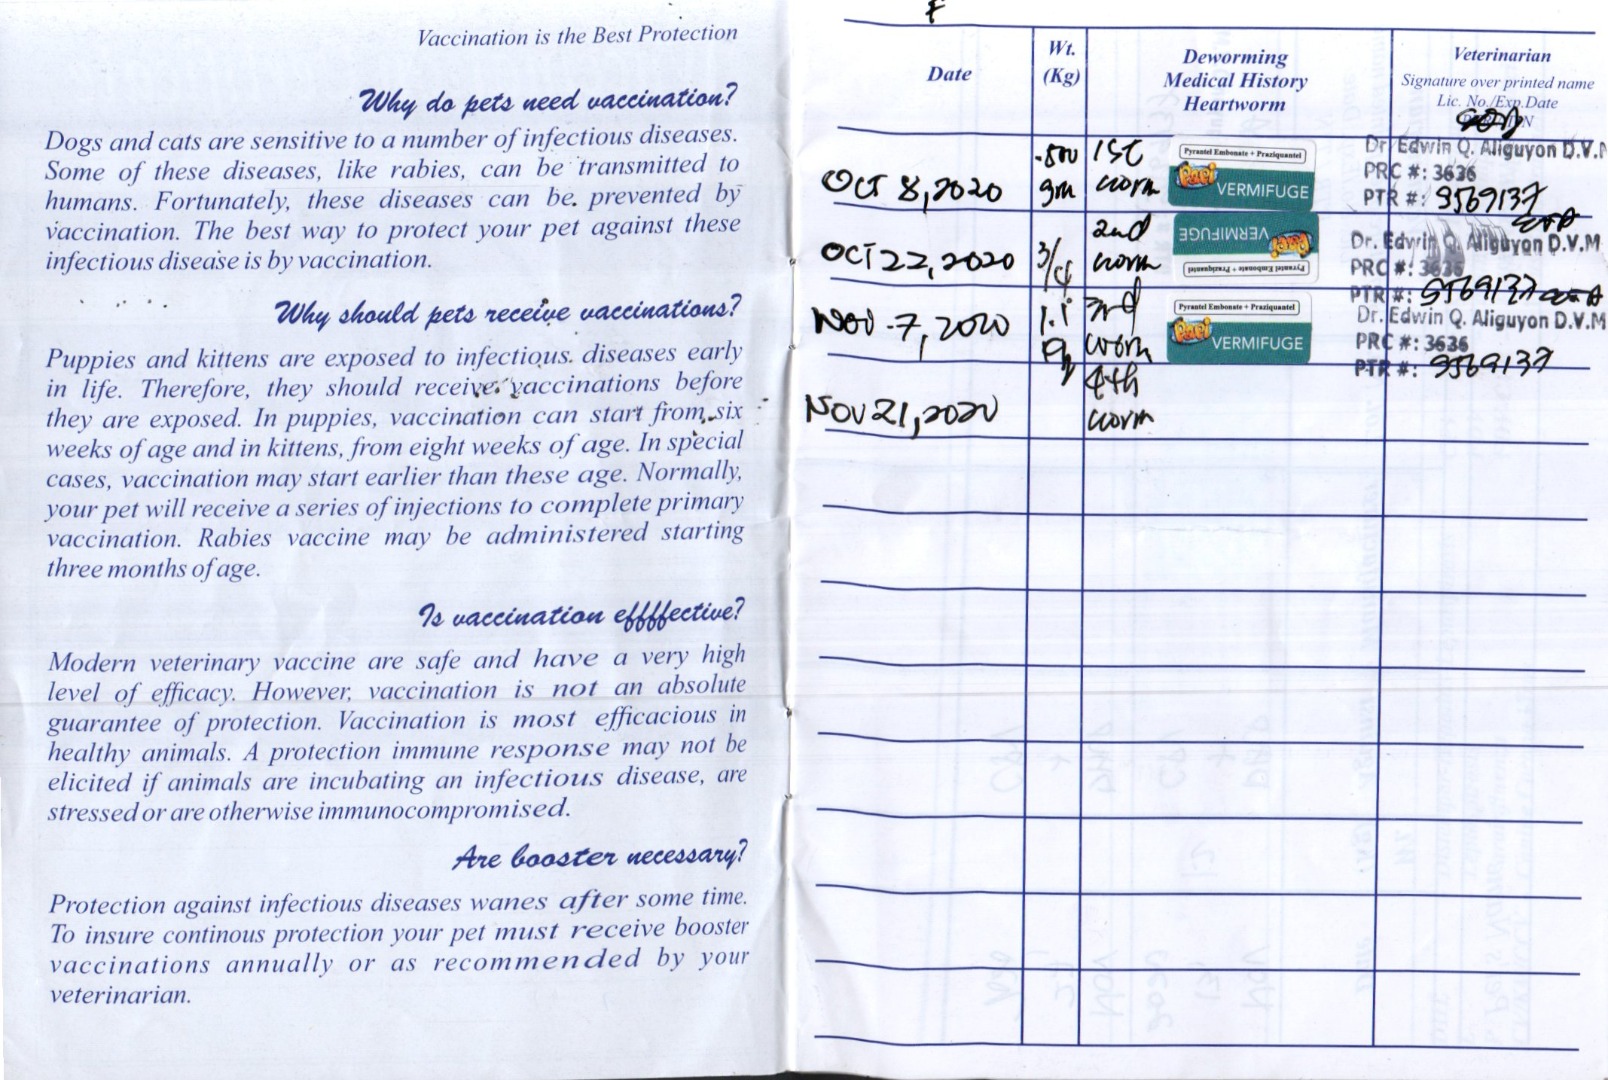 Vaccination is the Best Protection
Why do pets need vaccination?
Dogs and cats are sensitive to a number of infectious diseases.
Some of these diseases, like rabies, can be transmitted to
humans. Fortunately, these diseases can be. prevented by
vaccination. The best way to protect your pet against these
infectious disease is by vaccination.
Why should pets receive vaccinations?
Puppies and kittens are exposed to infectious. diseases early
in life. Therefore, they should receive vaccinations before
they are exposed. In puppies, vaccination can start from six
weeks of age and in kittens, from eight weeks of age. In special
cases, vaccination may start earlier than these age. Normally,
your pet will receive a series of injections to complete primary
vaccination. Rabies vaccine may be administered starting
three months of age.
Is vaccination effffective?
Modern veterinary vaccine are safe and have a very high
level of efficacy. However, vaccination is not an absolute
guarantee of protection. Vaccination is most efficacious in
healthy animals. A protection immune response may not be
elicited if animals are incubating an infectious disease, are
stressed or are otherwise immunocompromised.
Are booster necessary?
Protection against infectious diseases wanes after some time.
To insure continous protection your pet must receive booster
vaccinations annually or as recommended by your
veterinarian.
Date
Wt.
(Kg)
Deworming
Medical History
Heartworm
Veterinarian
Signature over printed name
Lic. No./Exp.Date
Oct 8, 2020
.500
gm
1st
worm
Pyrantel Embonate + Praziquantel
Papi
VERMIFUGE
Dr. Edwin Q. Aliguyon D.V.M
PRC #: 3636
PTR #: 9569137
Oct 22, 2020
3/4
2nd
worm
Papi
VERMIFUGE
Pyrantel Embonate + Praziquantel
Dr. Edwin Q. Aliguyon D.V.M
PRC #: 3636
PTR #: 9569137
Nov. 7, 2020
1.1
kg
3rd
worm
Pyrantel Embonate + Praziquantel
Papi
VERMIFUGE
Dr. Edwin Q. Aliguyon D.V.M
PRC #: 3636
PTR #: 9569137
Nov 21, 2020
4th
worm